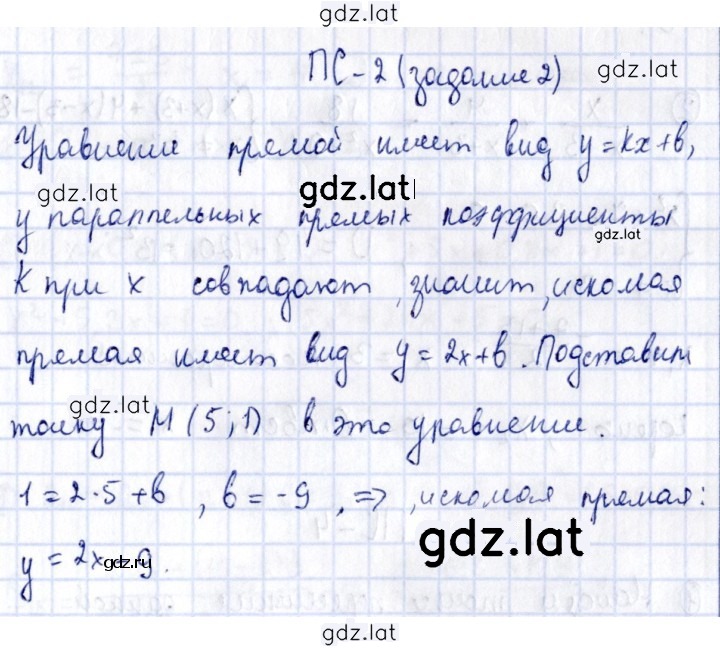 gdz.lat
ПС-2 (задание 2)
gdz.lat
Уравнение прямой имеет вид y=kx+b,
gdz.lat
gdz.lat
у параллельных прямых коэффициенты
gdz.lat
К при x совпадают, значит, искомая
прямая имеет вид y = 2x+b. Подставим
gdz.lat
точку M(5;1) в это уравнение.
1=2·5+b, b=-9, =>, искомая прямая:
gdz.lat
y = 2x-9.
gdz.ru
gdz.lat